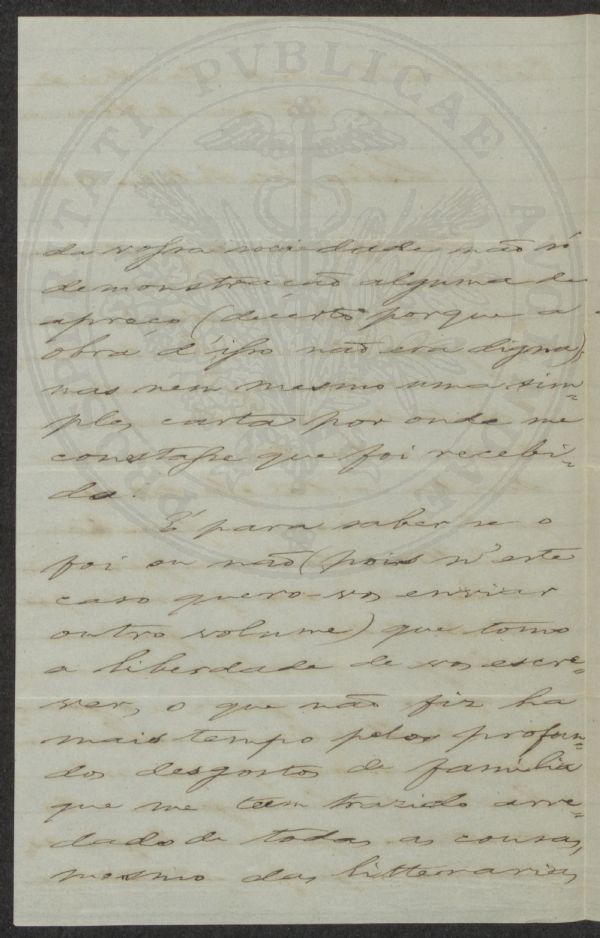 PROSPERITATI PVBLICAE AVGENDAE
da vossa sociedade não só
demonstração alguma de
apreço (decerto porque a
obra d'isso não era digna),
mas nem mesmo uma sim-
ples carta por onde me
constasse que foi recebi-
da.
É para saber se o
foi ou não (pois n'este
caso quero-vos enviar
outro volume) que tomo
a liberdade de vos escre-
ver, o que não fiz ha
mais tempo pelos profun-
dos desgostos de familia
que me teem trazido arre-
dado de todas as cousas,
mesmo das litterarias,